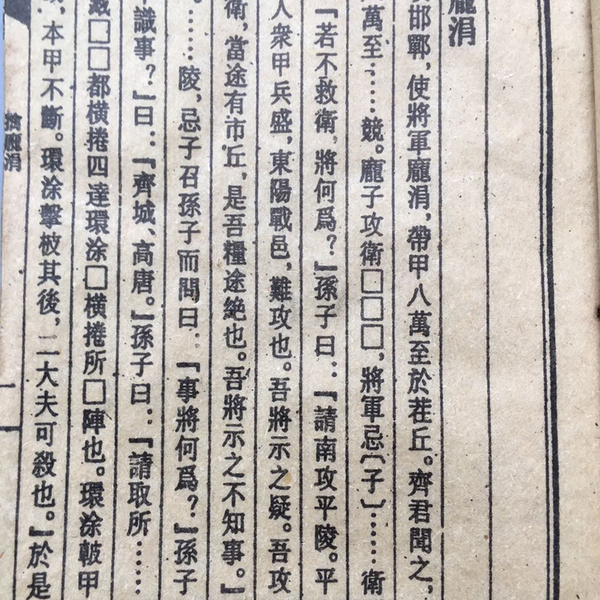 龐涓
邯鄲，使將軍龐涓，帶甲八萬至於茬丘。齊君聞之，
萬至……競。龐子攻衛□□□，將軍忌〔子〕……衛
『若不救衛，將何爲？』孫子曰：『請南攻平陵。平
人衆甲兵盛，東陽戰邑，難攻也。吾將示之疑。吾攻
衛，當途有市丘，是吾糧途絶也。吾將示之不知事。』
……陵，忌子召孫子而問曰：『事將何爲？』孫子
識事？』曰：『齊城、高唐。』孫子曰：『請取所……
□□都橫捲四達環涂□橫捲所□陣也。環涂鈹甲
，本甲不斷。環涂擊柀其後，二大夫可殺也。』於是
擒龐涓